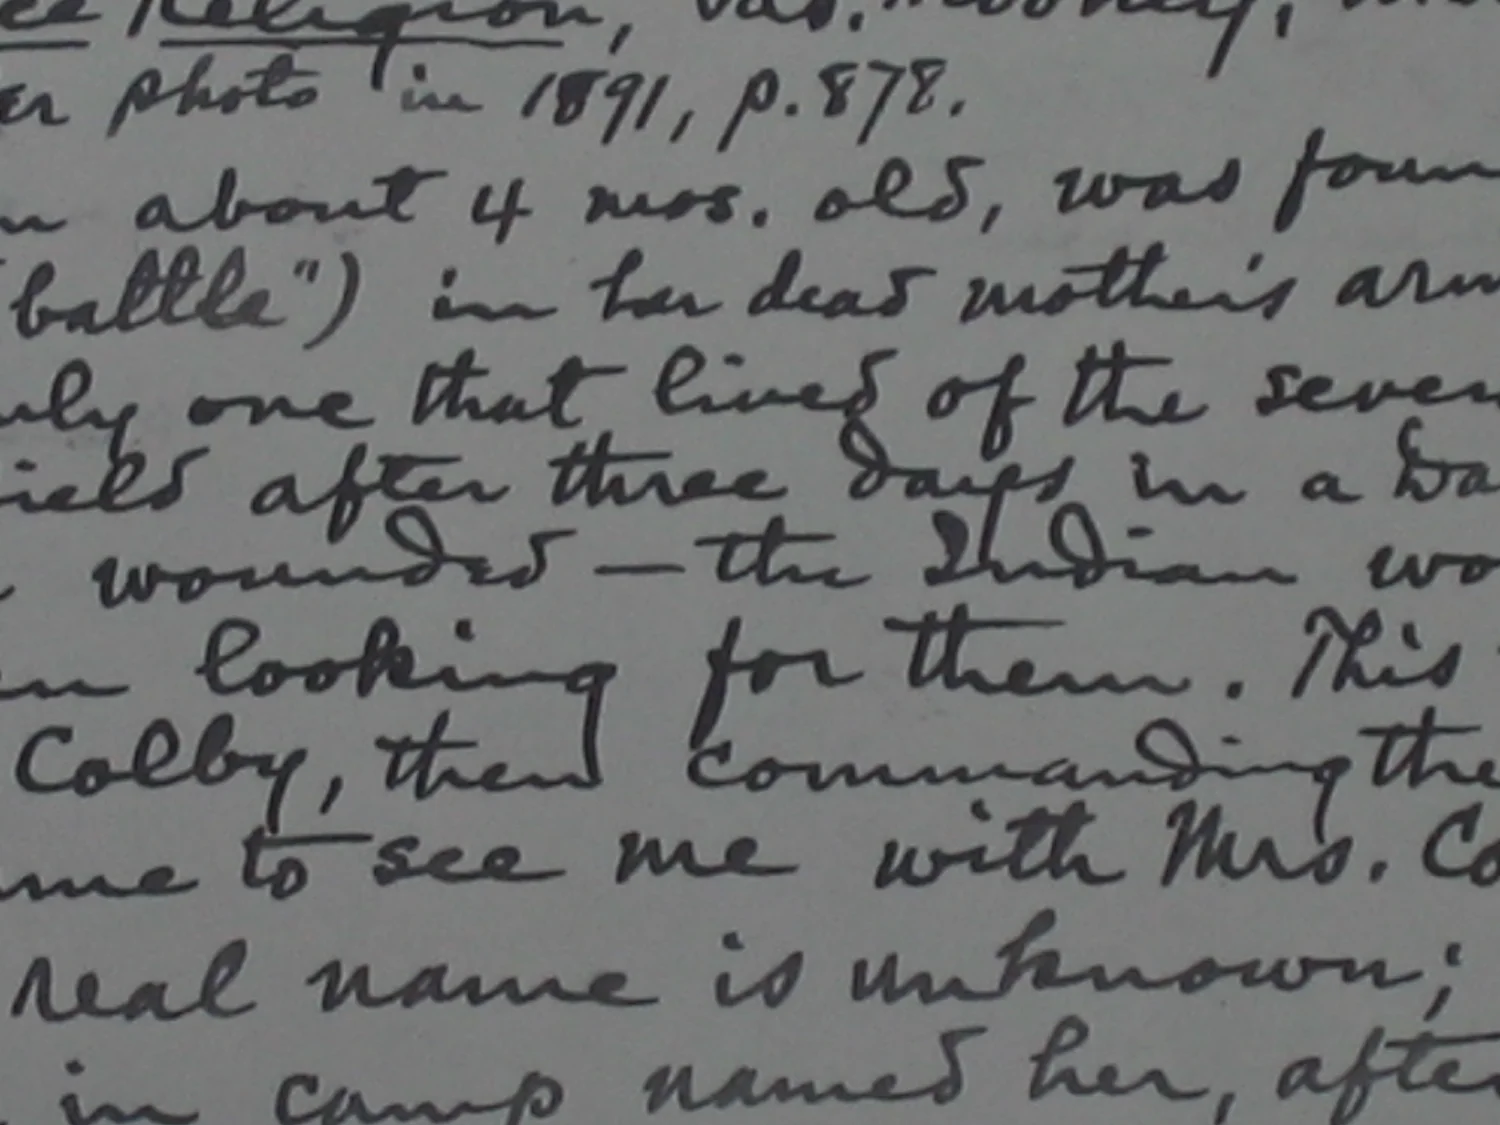 Religion, Jas. Mooney,
photo in 1891, p. 878.
about 4 mos. old, was foun
"battle") in her dead mother's arm
only one that lived of the seven
field after three days in a
wounded — the Indian wo
looking for them. This
Colby, then commanding the
to see me with Mrs. Co
real name is unknown;
in camp named her, after